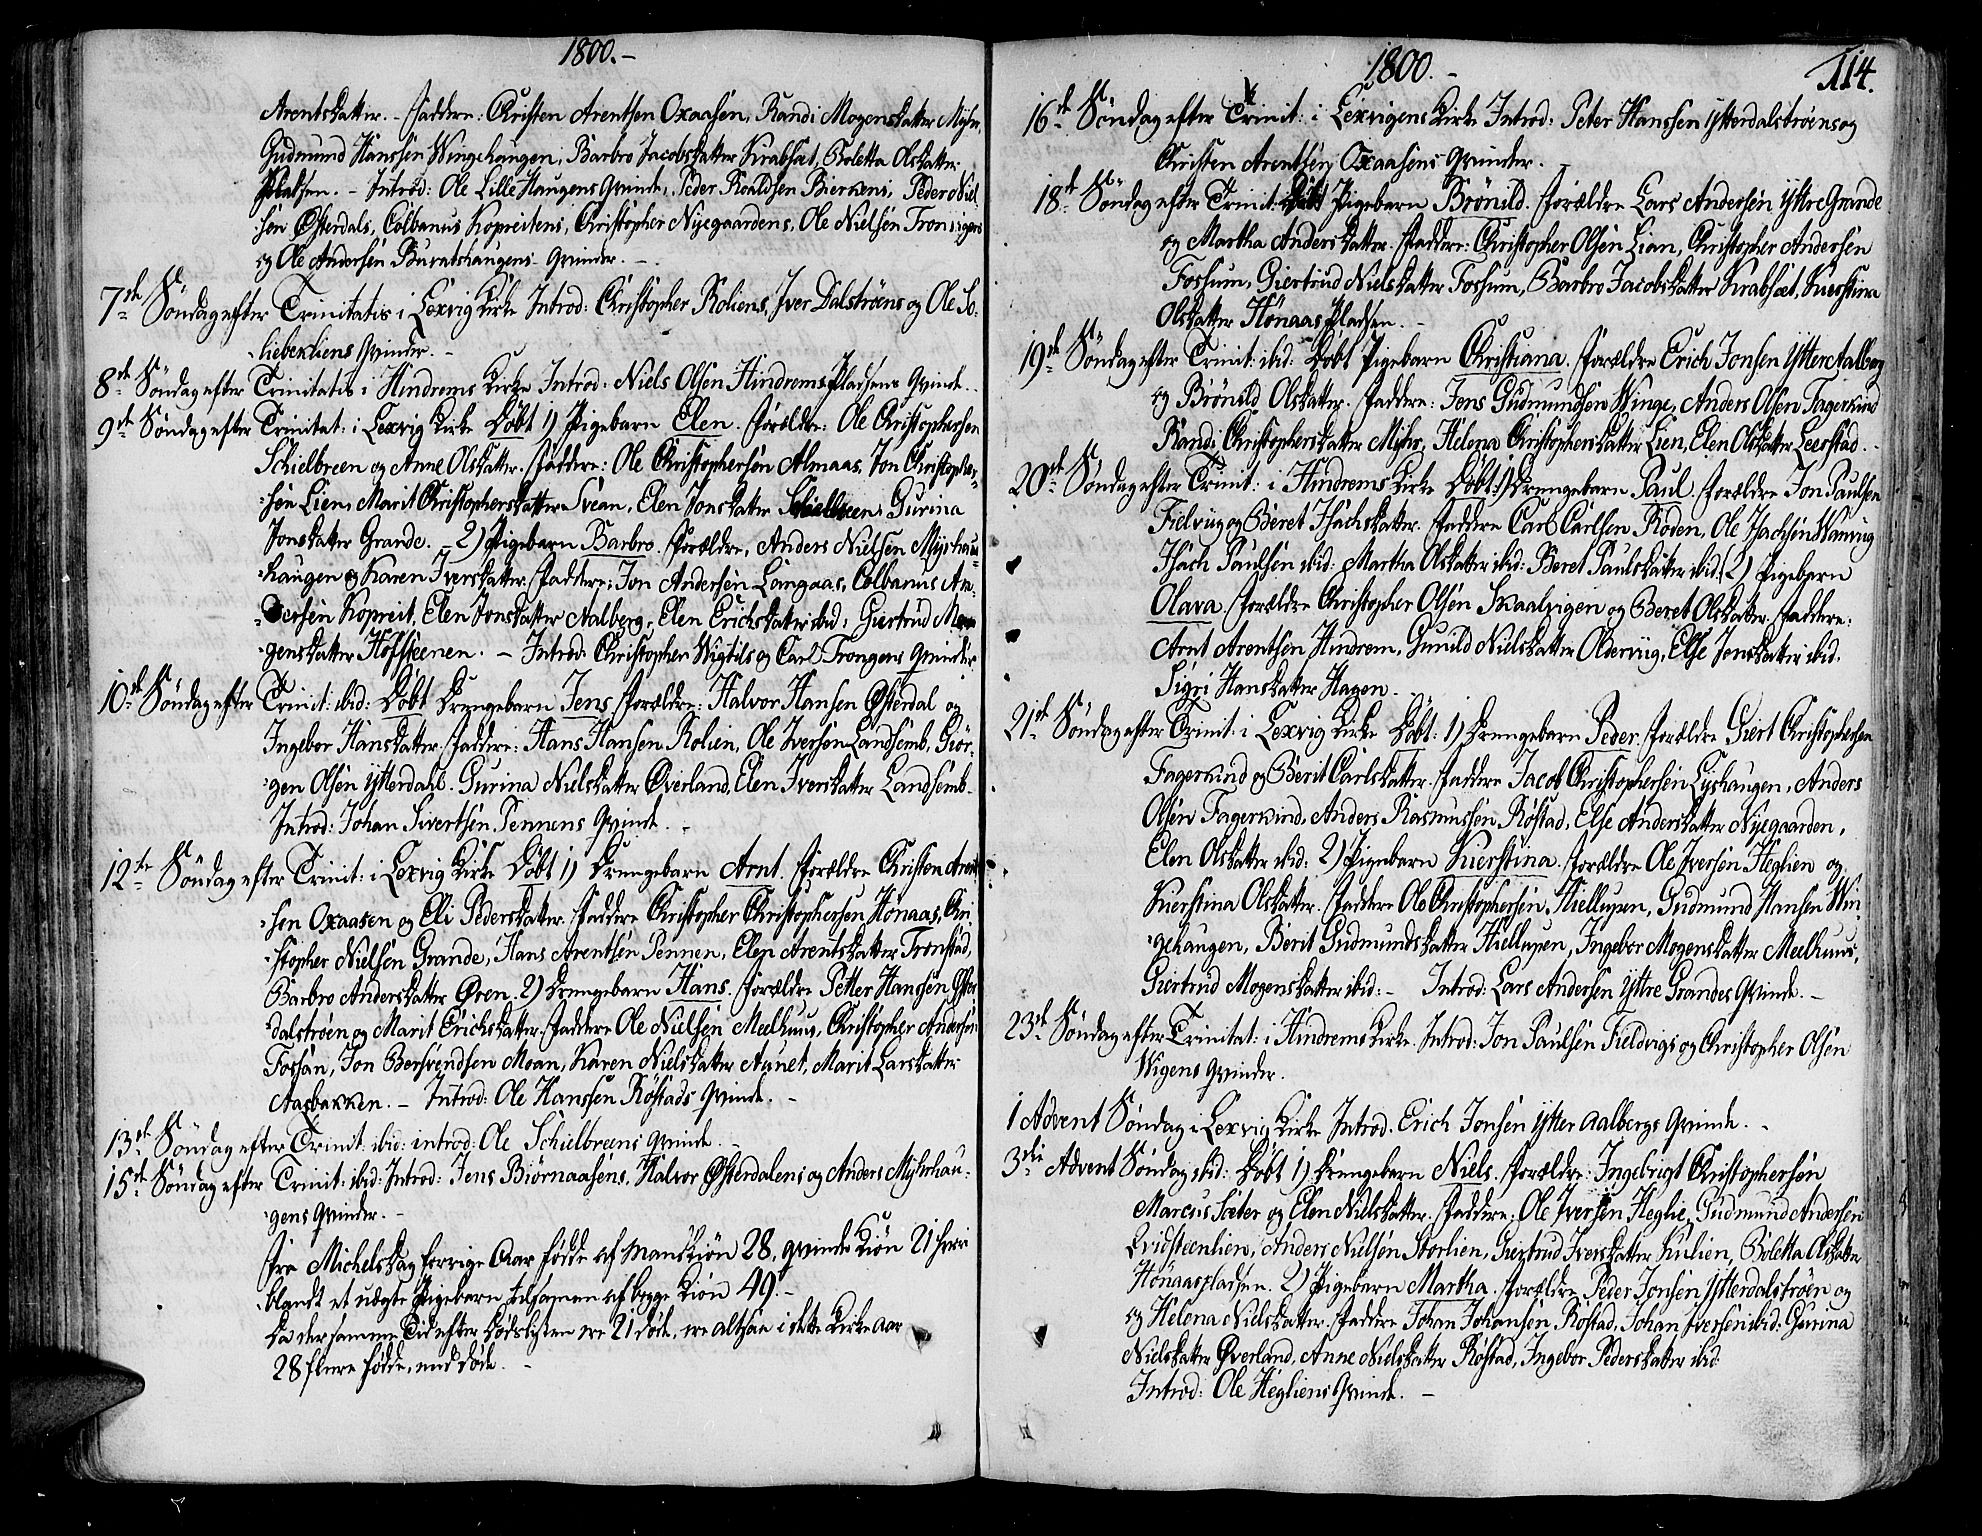 1800.-
Arentsdatter. - Faddere: Christen Arentsen Oxaasen, Randi Mogensdatter Myhr,
Gudmund Hanssen Wingehaugen, Barbro Jacobsdatter Krabsæt, Boletta Olsdatter
Pladsen. - Introd: Ole Lille Haugens Qvinde, Peder Roaldsen Bierkens, Peder Niel
sen Østerdals, Colbanus Kopreitens, Christopher Nyegaardens, Ole Nielsen Tronsvigens
og Ole Andersen Buratshaugens Qvinder. -
7de Søndag efter Trinitatis i Lexvig Kirke Introd: Christopher Roliens, Iver Dalstrøens og Ole So-
liebekliens Qvinder. -
8de Søndag efter Trinitatis i Hindrems Kirke Introd: Niels Olsen Hindrems Pladsens Qvinde. -
9de Søndag efter Trinitat: i Lexvig Kirke Døbt 1) Pigebarn Elen. Forældre: Ole Christophersen
Schielbreen og Anne Olsdatter. Faddere: Ole Christophersen Almaas, Jon Christopher-
sen Lien, Marit Christophersdatter Svean, Elen Jonsdatter Schielbreen, Gurina
Jonsdatter Grande. - 2) Pigebarn Barbro. Forældre, Anders Nielsen Myrhau-
haugen og Karen Iversdatter. Faddere: Jon Andersen Langaas, Colbanus An-
dersen Kopreit, Elen Jonsdatter Aalberg, Elen Erichsdatter ibid: Giertrud Mo-
gensdatter Hofsteenen. - Introd: Christopher Wigtils og Carl Trongens Qvinder
10de Søndag efter Trinit: ibid: Døbt Drengebarn Jens. Forældre: Halvor Hansen Østerdal og
Ingebor Hansdatter. Faddere: Hans Hansen Rolien, Ole Iversen Landsemb, Giør-
gen Olsen Ytterdahl. Gurina Nielsdatter Øverland, Elen Iversdatter Landsemb.
Introd: Johan Sivertsen Pennens Qvinde. -
12te Søndag efter Trinit: i Lexvig Kirke Døbt 1) Drengebarn Arnt. Forældre Christen Arent
sen Oxaasen og Eli Pedersdatter. Faddere Christopher Christophersen Hönaas, Chri-
stopher Nielsen Grande, Hans Arentsen Pennen, Elen Arentsdatter Tronstad,
Barbro Andersdatter Øren. 2) Drengebarn Hans. Forældre Petter Hanssen Ytter
dalstrøen og Marit Erichsdatter. Faddere Ole Nielsen Meelhuus, Christopher Andersen
Fossan, Jon Bersvendsen Moan, Karen Nielsdatter Aunet, Marit Larsdatter
Aasbakken. - Introd: Ole Hanssen Röstads Qvinde. -
13de Søndag efter Trinit: ibid: introd: Ole Schielbreens Qvinde. -
15de Søndag efter Trinit: ibid: Introd: Jens Biørnaasens, Halvor Østerdalens og Anders Myhrhau-
gens Qvinder. -
Fra Michelsdag forrige Aar fødde af Mandkiøn 28, qvinde Kiøn 21 hvor
blandt et uægte Pigebarn, tilsamen af begge Kiøn 49. -
Da der samme Tid efter Dødslisten ere 21 døde, ere altsaa i dette Kirke aar
28 flere fødde, end døde. -
1800. -
114.
16de Søndag efter Trinit: i Lexvigens Kirke Introd: Peter Hanssen Ytterdalstrøens og
Christen Arentsen Oxaasens Qvinder.
18de Søndag efter Trinit: Døbt Pigebarn Brönild. Forældre Lars Andersen Yttre Grande
og Martha Andersdatter. Faddere: Christopher Olsen Lian, Christopher Andersen
Fossum, Giertrud Nielsdatter Fossum, Barbro Jacobsdatter Krabsæt, Kierstina
Olsdatter Hönaas Pladsen. -
19de Søndag efter Trinit: ibid: Døbt Pigebarn Christiana. Forældre Erich Jonsen Ytter Aalberg
og Brönild Olsdatter. Faddere: Jens Gudmundsen Winge, Anders Olsen Fagervind
Randi Christophersdatter Myhr, Helena Christophersdatter Lien, Elen Olsdatter Leerstad. -
20de Søndag efter Trinit: i Hindrems Kirke Døbt: 1) Drengebarn Paul. Forældre Jon Paulsen
Fielvüg og Beret Isachsdatter. Faddere Carl Carlsen Roden, Ole Isachsen Wanvüg
Isach Paulsen ibid: Martha Olsdatter ibid: Beret Paulsdatter ibid: 2) Pigebarn
Olava. Forældre Christopher Olsen Skaalvigen og Beret Olsdatter. Faddere:
Arnt Arentsen Hindrem, Gunild Nielsdatter Oldervüg, Else Jensdatter ibid.
Sigri Hansdatter Hagen. -
21de Søndag efter Trinit: i Lexvig Kirke Døbt: 1) Drengebarn Peder. Forældre Giert Christophersen
Fagervind og Berit Carlsdatter. Faddere Jacob Christophersen Lyshaugen, Anders
Olsen Fagervind, Anders Rasmussen Röstad, Else Andersdatter Nyegaarden,
Elen Olsdatter ibid: 2) Pigebarn Kierstina. Forældre Ole Iversen Heglien og
Kierstina Olsdatter. Faddere Ole Christophersen Hiellupen, Gudmund Hansen Win-
gehaugen, Berit Gudmundsdatter Hiellupen, Ingebor Mogensdatter Meelhuus,
Giertrud Mogensdatter ibid: - Introd: Lars Andersen Yttre Grandes Qvinde. -
23de Søndag efter Trinitat: i Hindrems Kirke. Introd: Jon Paulsen Fieldvigs og Christopher Olsen
Wigens Qvinder.
1 Advent Søndag i Lexvig Kirke Introd. Erich Jonsen Ytter Aalbergs Qvinde. -
3die Advent Søndag ibid: Døbt 1) Drengebarn Niels. Forældre: Ingebrigt Christophersen
Marcus Sæter og Elen Nielsdatter. Faddere: Ole Iversen Heglie, Gudmund Andersen
Qvidsteenlien, Anders Nielsen Storlien, Giertrud Iversdatter Kulien, Boletta Olsdatter
Hönaaspladsen. 2) Pigebarn Martha. Forældre Peder Jonsen Ytterdalstrøen og
og Helena Nielsdatter. Faddere Johan Johansen Röstad, Johan Iversen ibid: Gurina
Nielsdatter Øverland, Anne Nielsdatter Röstad, Ingebor Pedersdatter ibid:
Introd: Ole Hegliens Qvinde. -